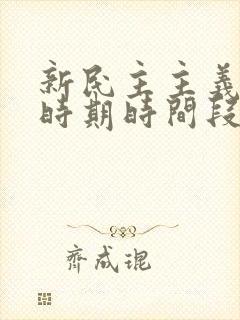 新民主主義
時期時間段
齊成琨